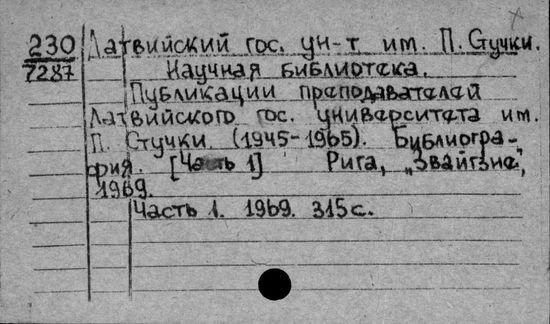 230 Латвийский гос. ун-т им. П. Стучки.
7287 Научная библиотека.
Публикации преподавателей
Латвийского гос. университета им.
П. Стучки. (1945-1965). Библиогра-
фия. [Часть 1] Рига, „Звайгзне",
1969.
Часть 1. 1969. 315 с.